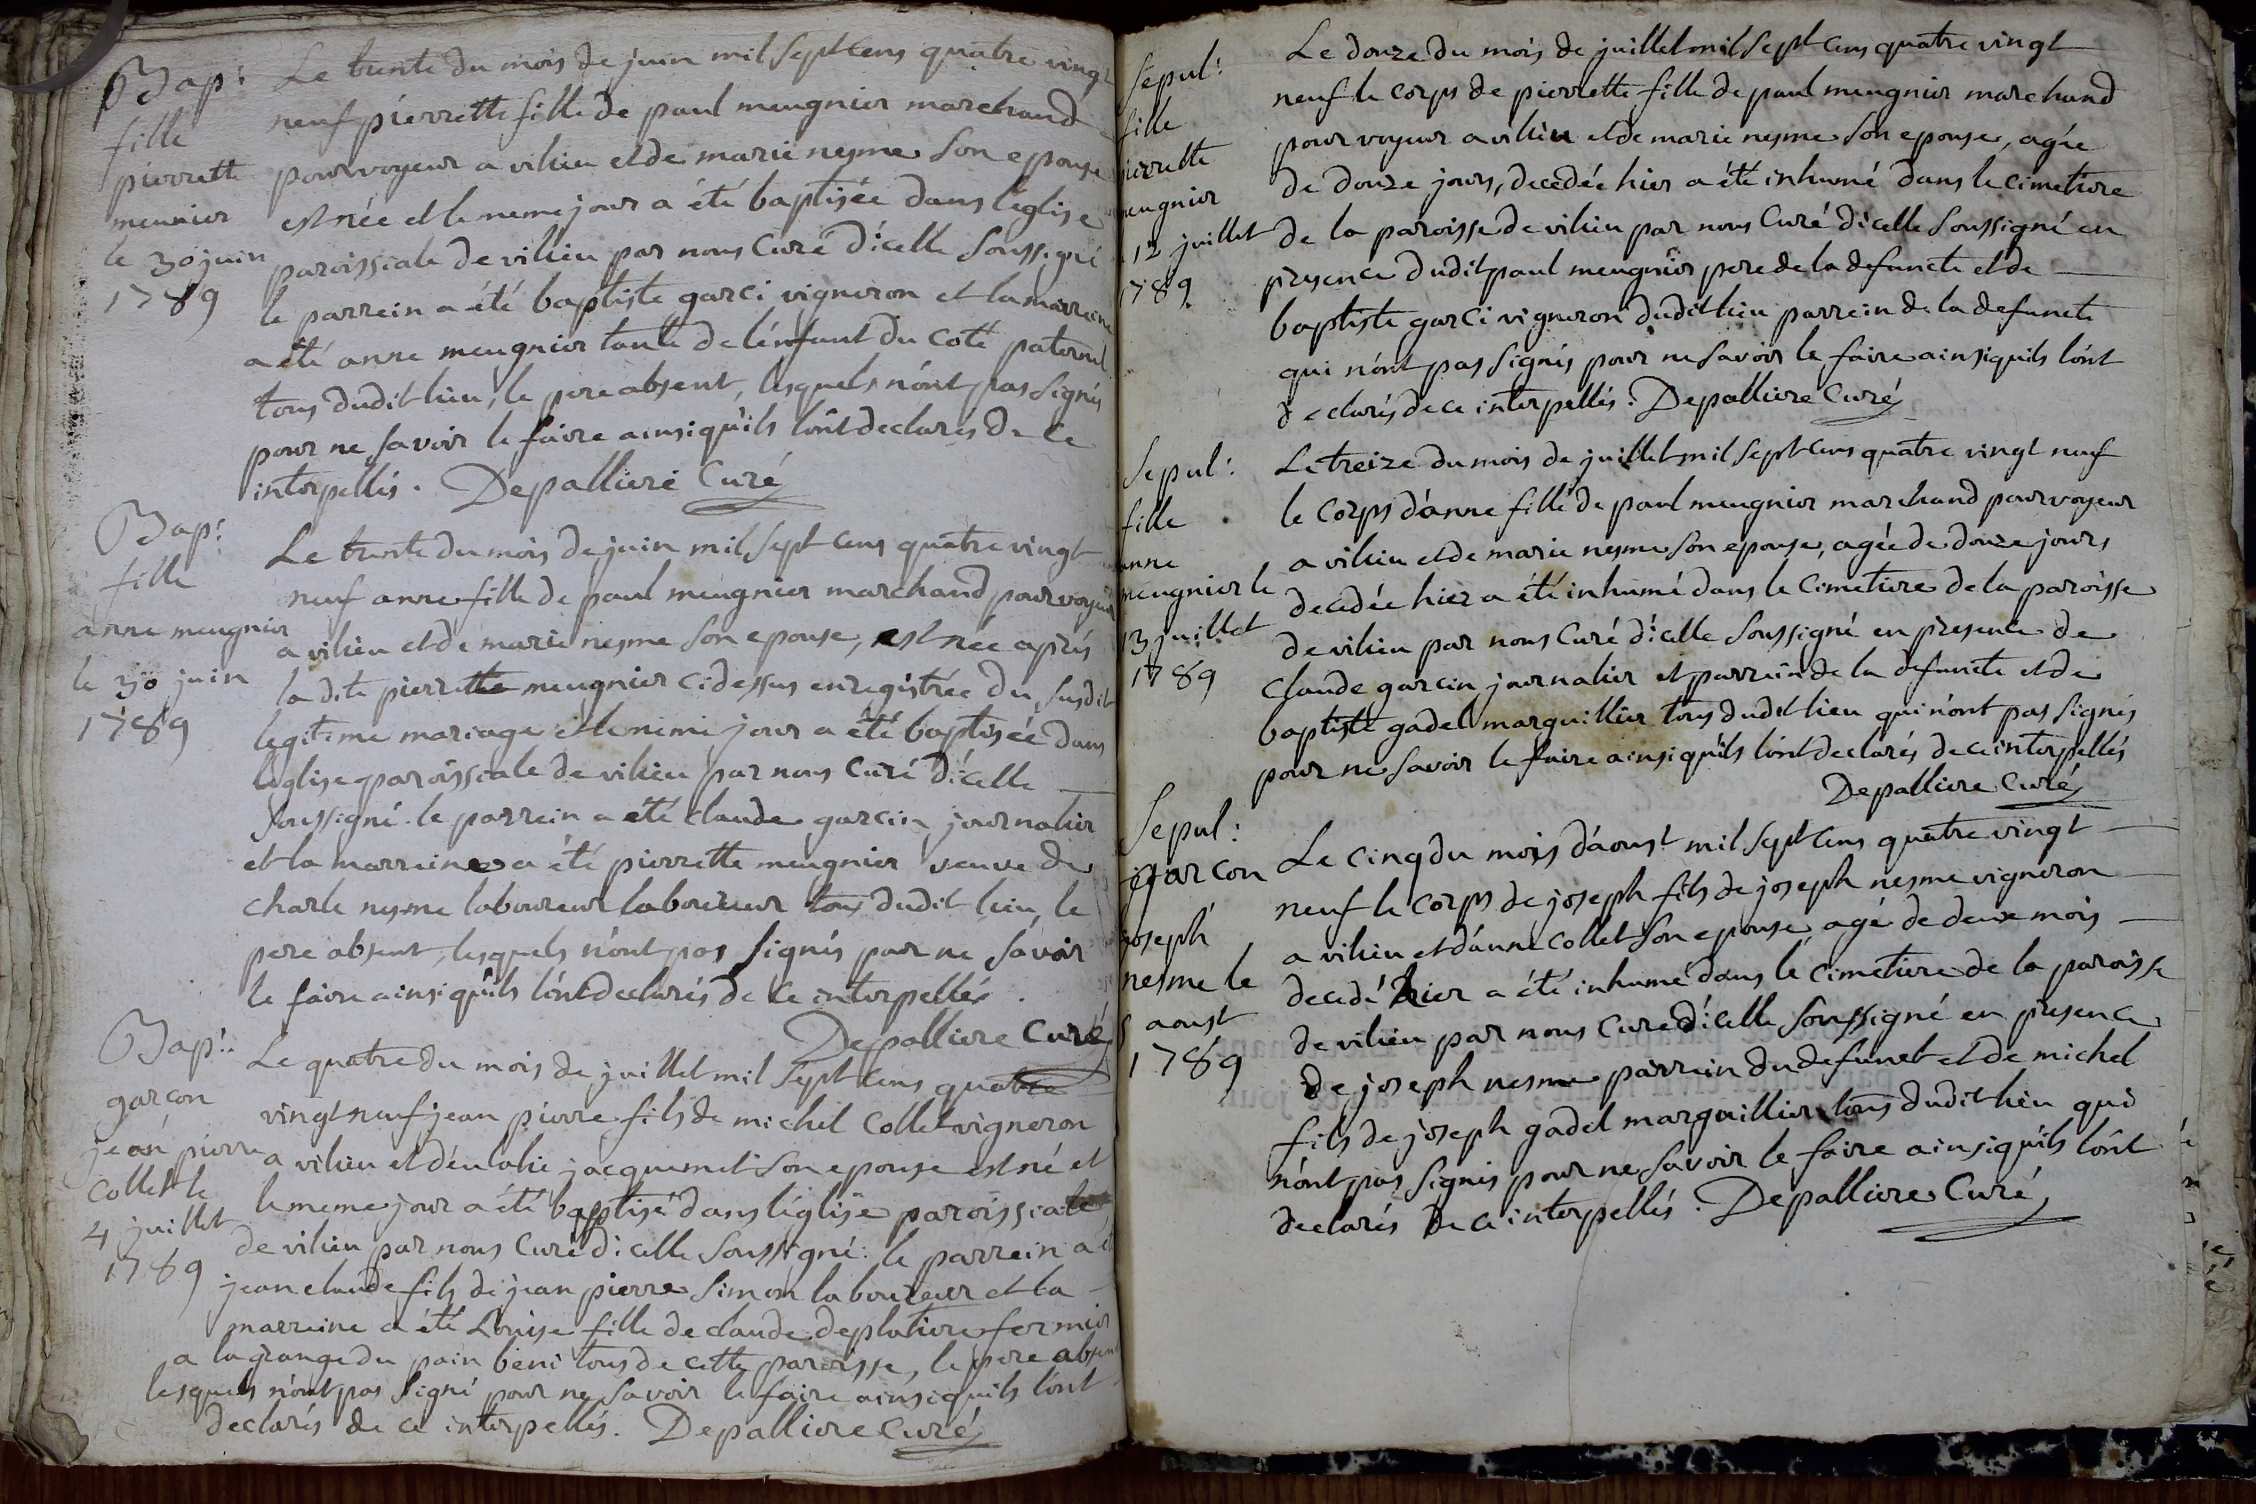 Bap:
fille
pierrette
meunier
le 30 juin
1789
Le trente du mois de juin mil sept cens quatre vingt
neuf pierrette fille de paul meugnier marchand
pourvoyeur a vilieu et de marie nesme son epouse
est née et le meme jour a été baptisée dans l'eglise
paroissiale de vilieu par nous Curé d'icelle soussigné
le parrein a été baptiste garci vigneron et la marreine
a été anne meugnier tante de l'enfant du coté paternel
tous dudit lieu, le pere absent, lesquels n'ont pas signés
pour ne savoir le faire ainsi qu'ils l'ont declarés de ce
interpellés. Depalliere Curé
Bap:
fille
anne meugnier
le 30 juin
1789
Le trente du mois de juin mil sept cens quatre vingt
neuf anne fille de paul meugnier marchand pourvoyeur
a vilieu et de marie nesme son epouse, est née aprés
la dite pierrette meugnier cidessus enregistrée du susdit
legitime mariage et le meme jour a été baptisée dans
l'eglise paroissiale de vilieu par nous Curé d'icelle
soussigné. le parrein a été claude garcin journalier
et la marreine a été pierrette meugnier veuve de
charle nesme laboureur laboureur tous dudit lieu, le
pere absent, lesquels n'ont pas signés pour ne savoir
le faire ainsi qu'ils l'ont declarés de ce interpellés.
Depalliere Curé
Bap:
garcon
jean pierre
Collet le
4 juillet
1789
Le quatre du mois de juillet mil sept cens quatre
vingt neuf jean pierre fils de michel Collet vigneron
a vilieu et d'eulalie jacquemet son epouse est né et
le meme jour a été baptisé dans l'eglise paroissiale
de vilieu par nous Curé dicelle soussigné: le parrein a été
jean claude fils de jean pierre simon laboureur et la
marreine a été Louise fille de claude deplatiere fermier
a la grange du pain beni tous de cette paroisse, le pere absent
lesquels n'ont pas signé pour ne savoir le faire ainsi quils l'ont
declarés de ce interpellés. Depalliere Curé
Sepul:
fille
pierrette
meugnier
12 juillet
1789
Le douze du mois de juillet mil sept cens quatre vingt
neuf le corps de pierrette fille de paul meugnier marchand
pourvoyeur a vilieu et de marie nesme son epouse, agée
de douze jours, decedée hier a été inhumé dans le cimetiere
de la paroisse de vilieu par nous Curé d'icelle soussigné en
presence dudit paul meugnier pere de la defuncte et de
baptiste garci vigneron dudit lieu parrein de la defuncte
qui n'ont pas signés pour ne savoir le faire ainsi quils l'ont
declarés de ce interpellés. Depalliere Curé
Sepul:
fille
anne
meugnier le
13 juillet
1789
Le treize du mois de juillet mil sept cens quatre vingt neuf
le corps d'anne fille de paul meugnier marchand pourvoyeur
a vilieu et de marie nesme son epouse, agée de douze jours
decedée hier a été inhumé dans le cimetiere de la paroisse
de vilieu par nous Curé d'icelle soussigné en presence de
claude garcin journalier et parrein de la defuncte et de
baptiste gadel marguillier tous dudit lieu qui n'ont pas signés
pour ne savoir le faire ainsi qu'ils l'ont declarés de ce interpellés
Depalliere Curé
Sepul:
garcon
joseph
nesme le
5 aoust
1789
Le cinq du mois d'aoust mil sept cens quatre vingt
neuf le corps de joseph fils de joseph nesme vigneron
a vilieu et d'anne collet son epouse, agé de deux mois
decedé hier a été inhumé dans le cimetiere de la paroisse
de vilieu par nous Curé d'icelle soussigné en presence
de joseph nesme parrein du defunct et de michel
fils de joseph gadel marguillier tous dudit lieu qui
n'ont pas signés pour ne savoir le faire ainsi quils l'ont
declarés de ce interpellés. Depalliere Curé